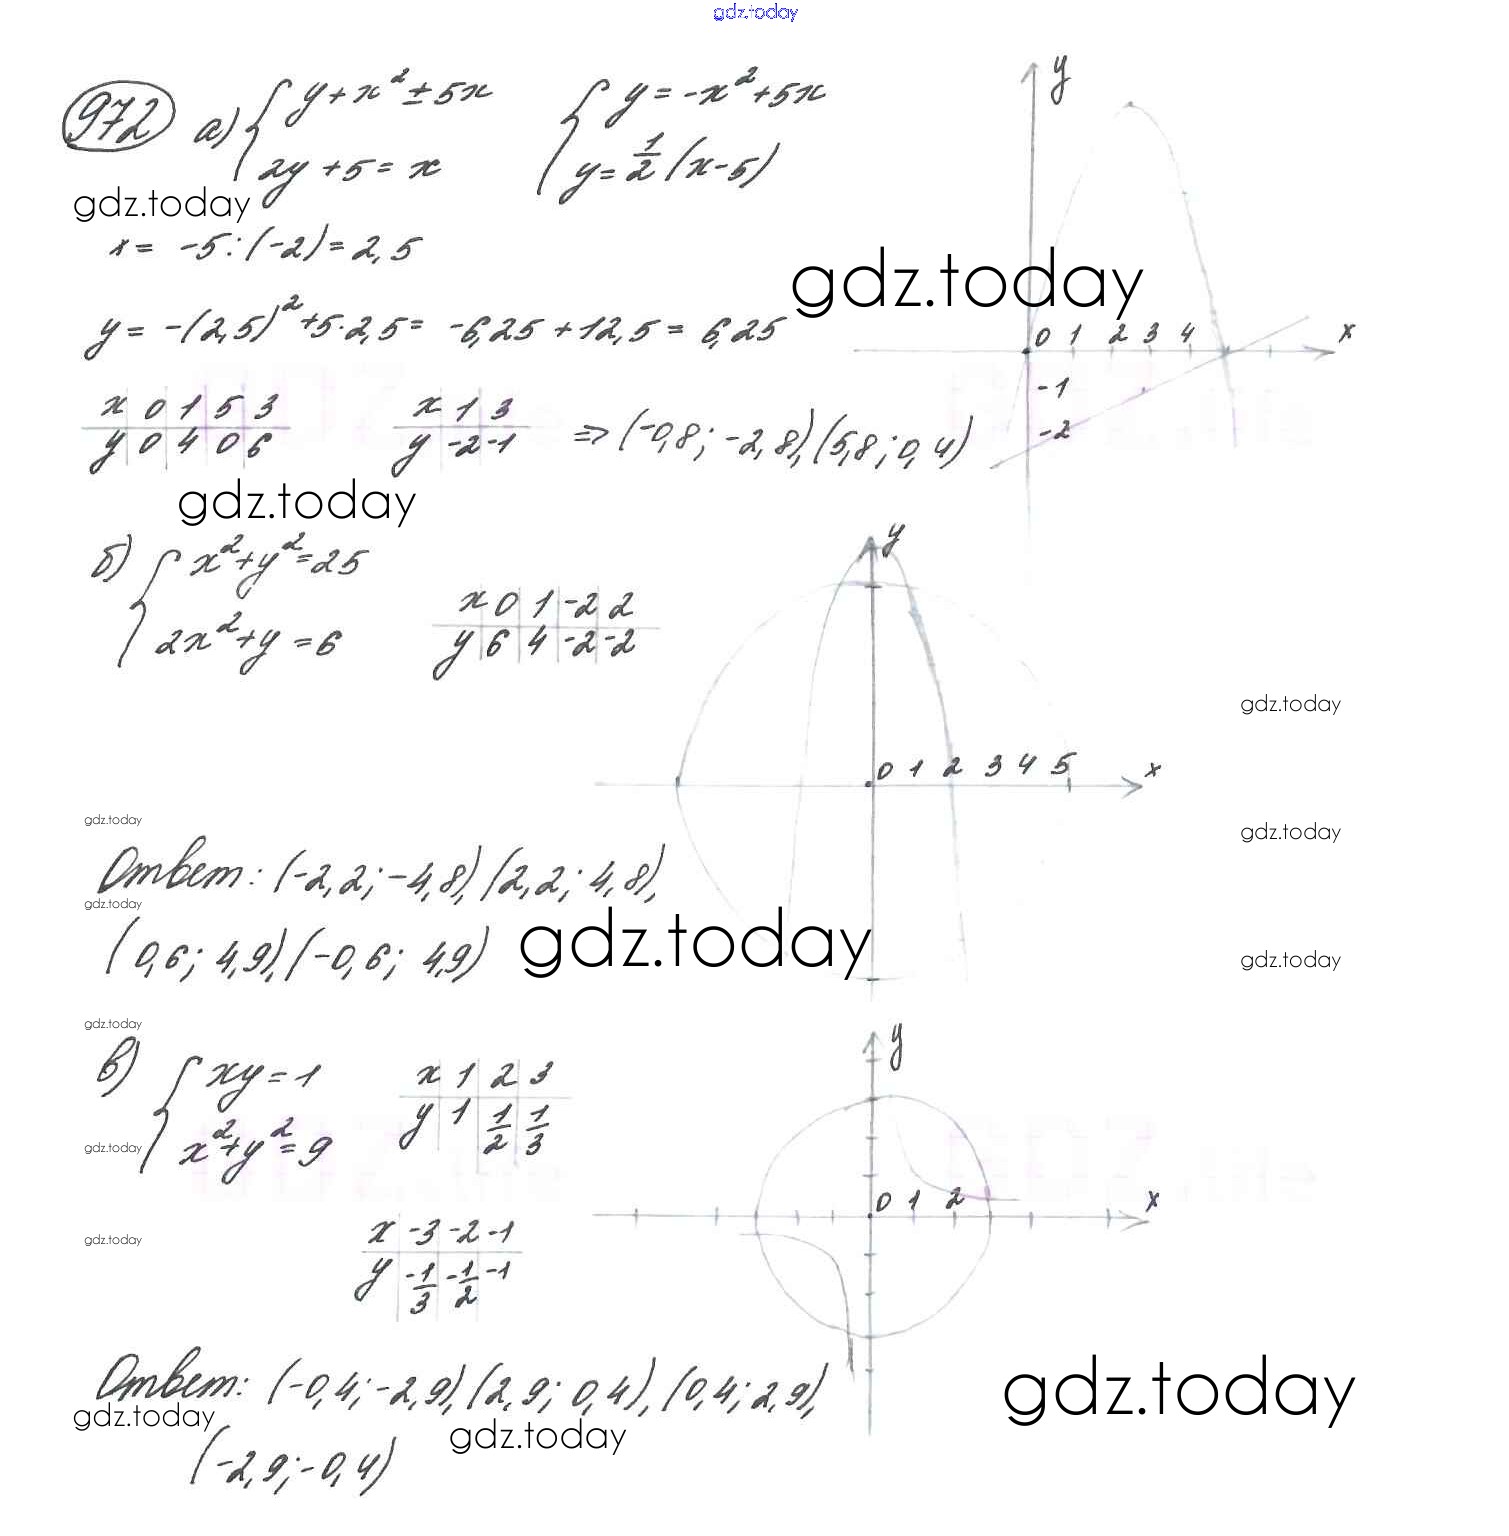 gdz.today
972 а) { y + x² ± 5x
2y + 5 = x
{ y = -x² + 5x
y = 1/2 (x - 5)
gdz.today
x = -5 : (-2) = 2,5
gdz.today
y = -(2,5)² + 5 · 2,5 = -6,25 + 12,5 = 6,25
x 0 1 5 3
y 0 4 0 6
x 1 3
y -2 -1
=> (-0,8; -2,8), (5,8; 0,4)
y
0 1 2 3 4 x
-1
-2
gdz.today
б) { x² + y² = 25
2x² + y = 6
x 0 1 -2 2
y 6 4 -2 -2
y
0 1 2 3 4 5 x
gdz.today
gdz.today
gdz.today
gdz.today
Ответ: (-2,2; -4,8), (2,2; 4,8),
gdz.today
(0,6; 4,9), (-0,6; 4,9)
gdz.today
gdz.today
в) { xy = 1
x² + y² = 9
x 1 2 3
y 1 1/2 1/3
gdz.today
x -3 -2 -1
y -1/3 -1/2 -1
gdz.today
y
0 1 2 x
Ответ: (-0,4; -2,9), (2,9; 0,4), (0,4; 2,9),
gdz.today
gdz.today
gdz.today
(-2,9; -0,4)